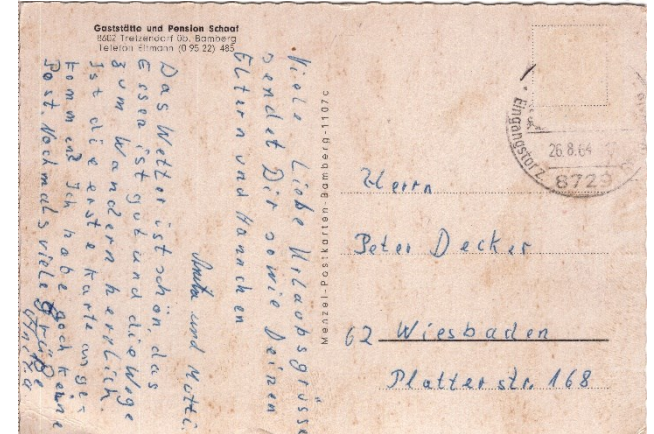 Gaststätte und Pension Schaaf
8602 Tretzendorf üb. Bamberg
Telefon Eltmann (0 95 22) 485
Viele liebe Urlaubsgrüsse
sendet Dir sowie Deinen
Eltern und Hannchen
Anita und Mutti.
Das Wetter ist schön, das
Essen ist gut und die Wege
zum Wandern herrlich.
Ist die erste Karte ange-
kommen? Ich habe noch keine
Post. Nochmals viele Grüße
Anita
Menzel-Postkarten-Bamberg-1107c
Eingangstor z.
26.8.64
8729
Herrn
Peter Decker
62 Wiesbaden
Platter str. 168